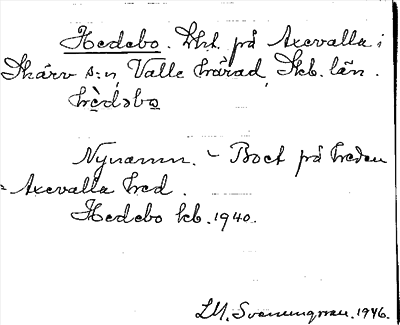 Hedebo. Lht. på Axevalla i
Skärv s:n, Valle härad, Skb. län.
hèdəbo
Nynamn. - Boet på heden
- Axevalla hed.
Hedebo kb. 1940.
1946.